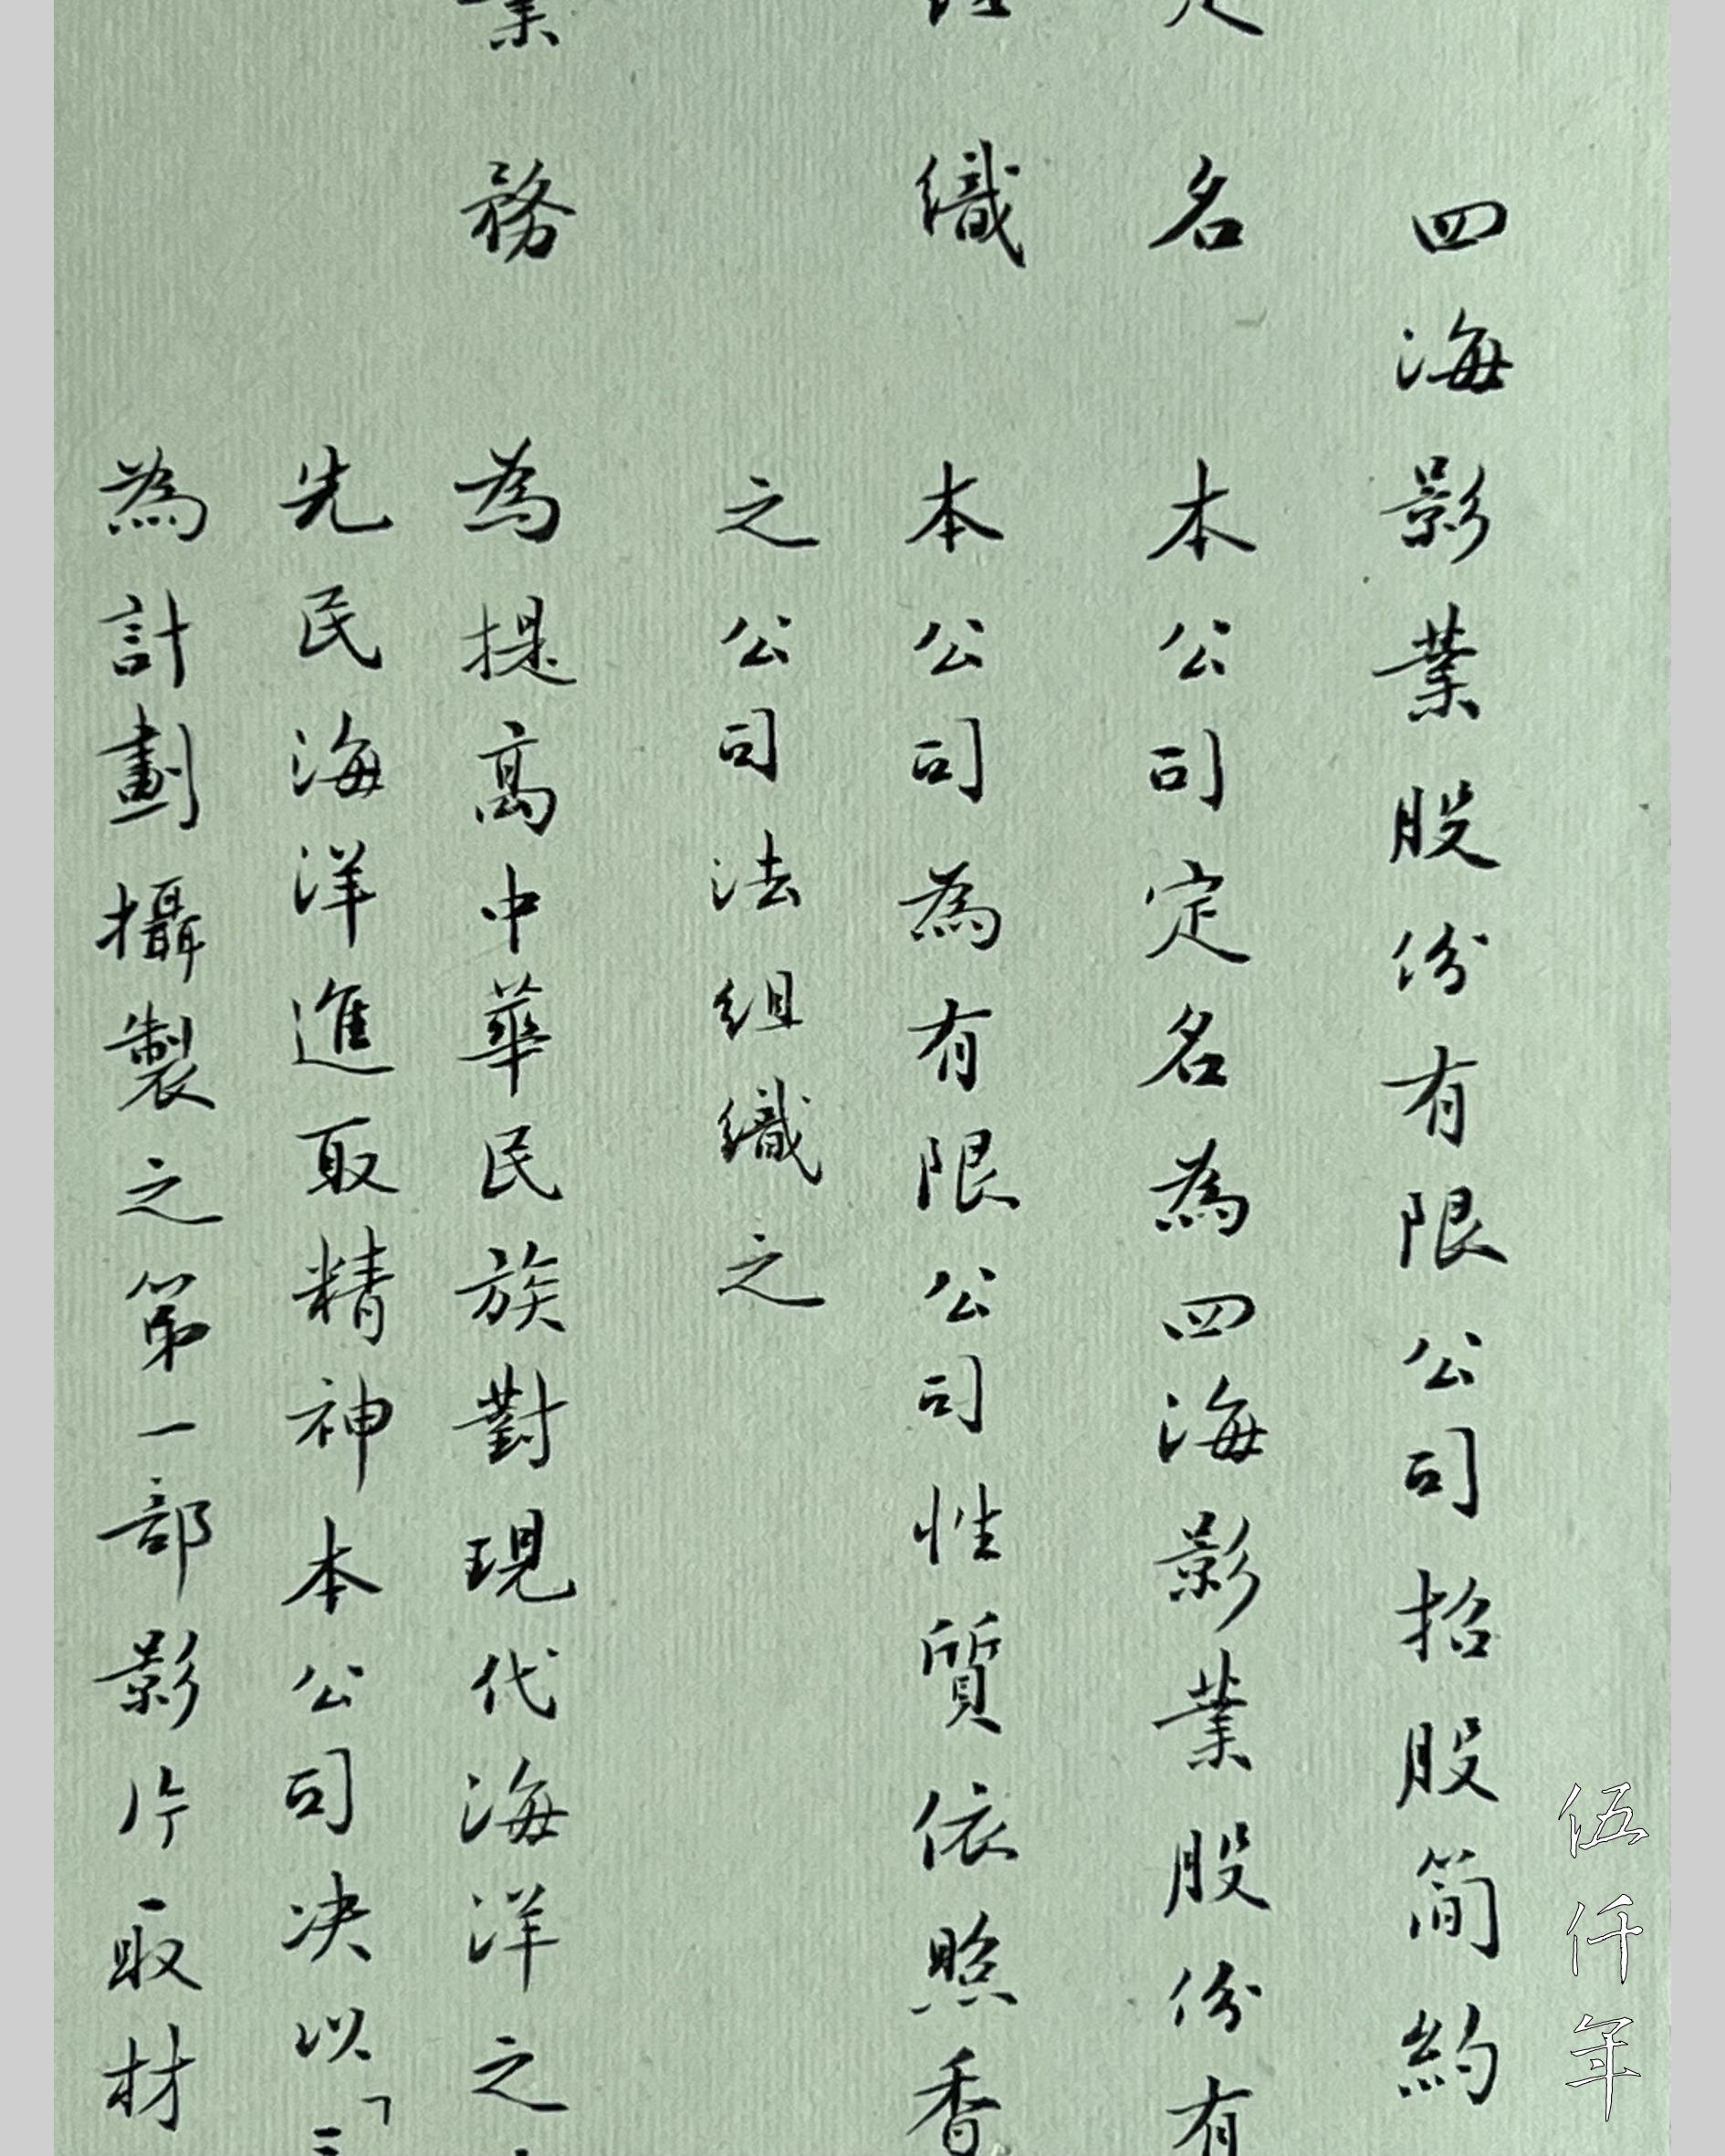 伍仟年
四海影業股份有限公司招股简約
定名 本公司定名為四海影業股份有
組織 本公司為有限公司性質依照香
之公司法組織之
業務 為提高中華民族對現代海洋之
先民海洋進取精神本公司决以「三
為計劃攝製之第一部影片取材